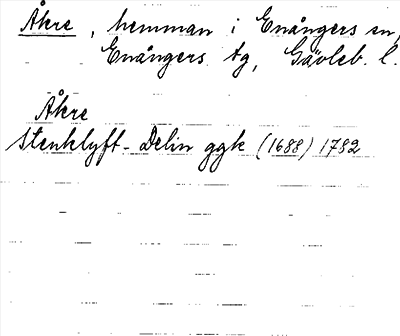 Åkre, hemman i Enångers sn,
Enångers tg, Gävleb. l.
Åkre
Stenklyft-Delin ggk (1688) 1792